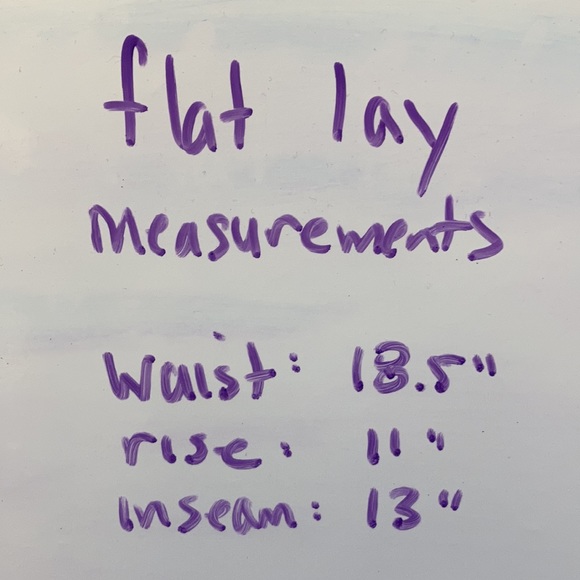 flat lay
measurements
Waist: 18.5"
rise: 11"
inseam: 13"